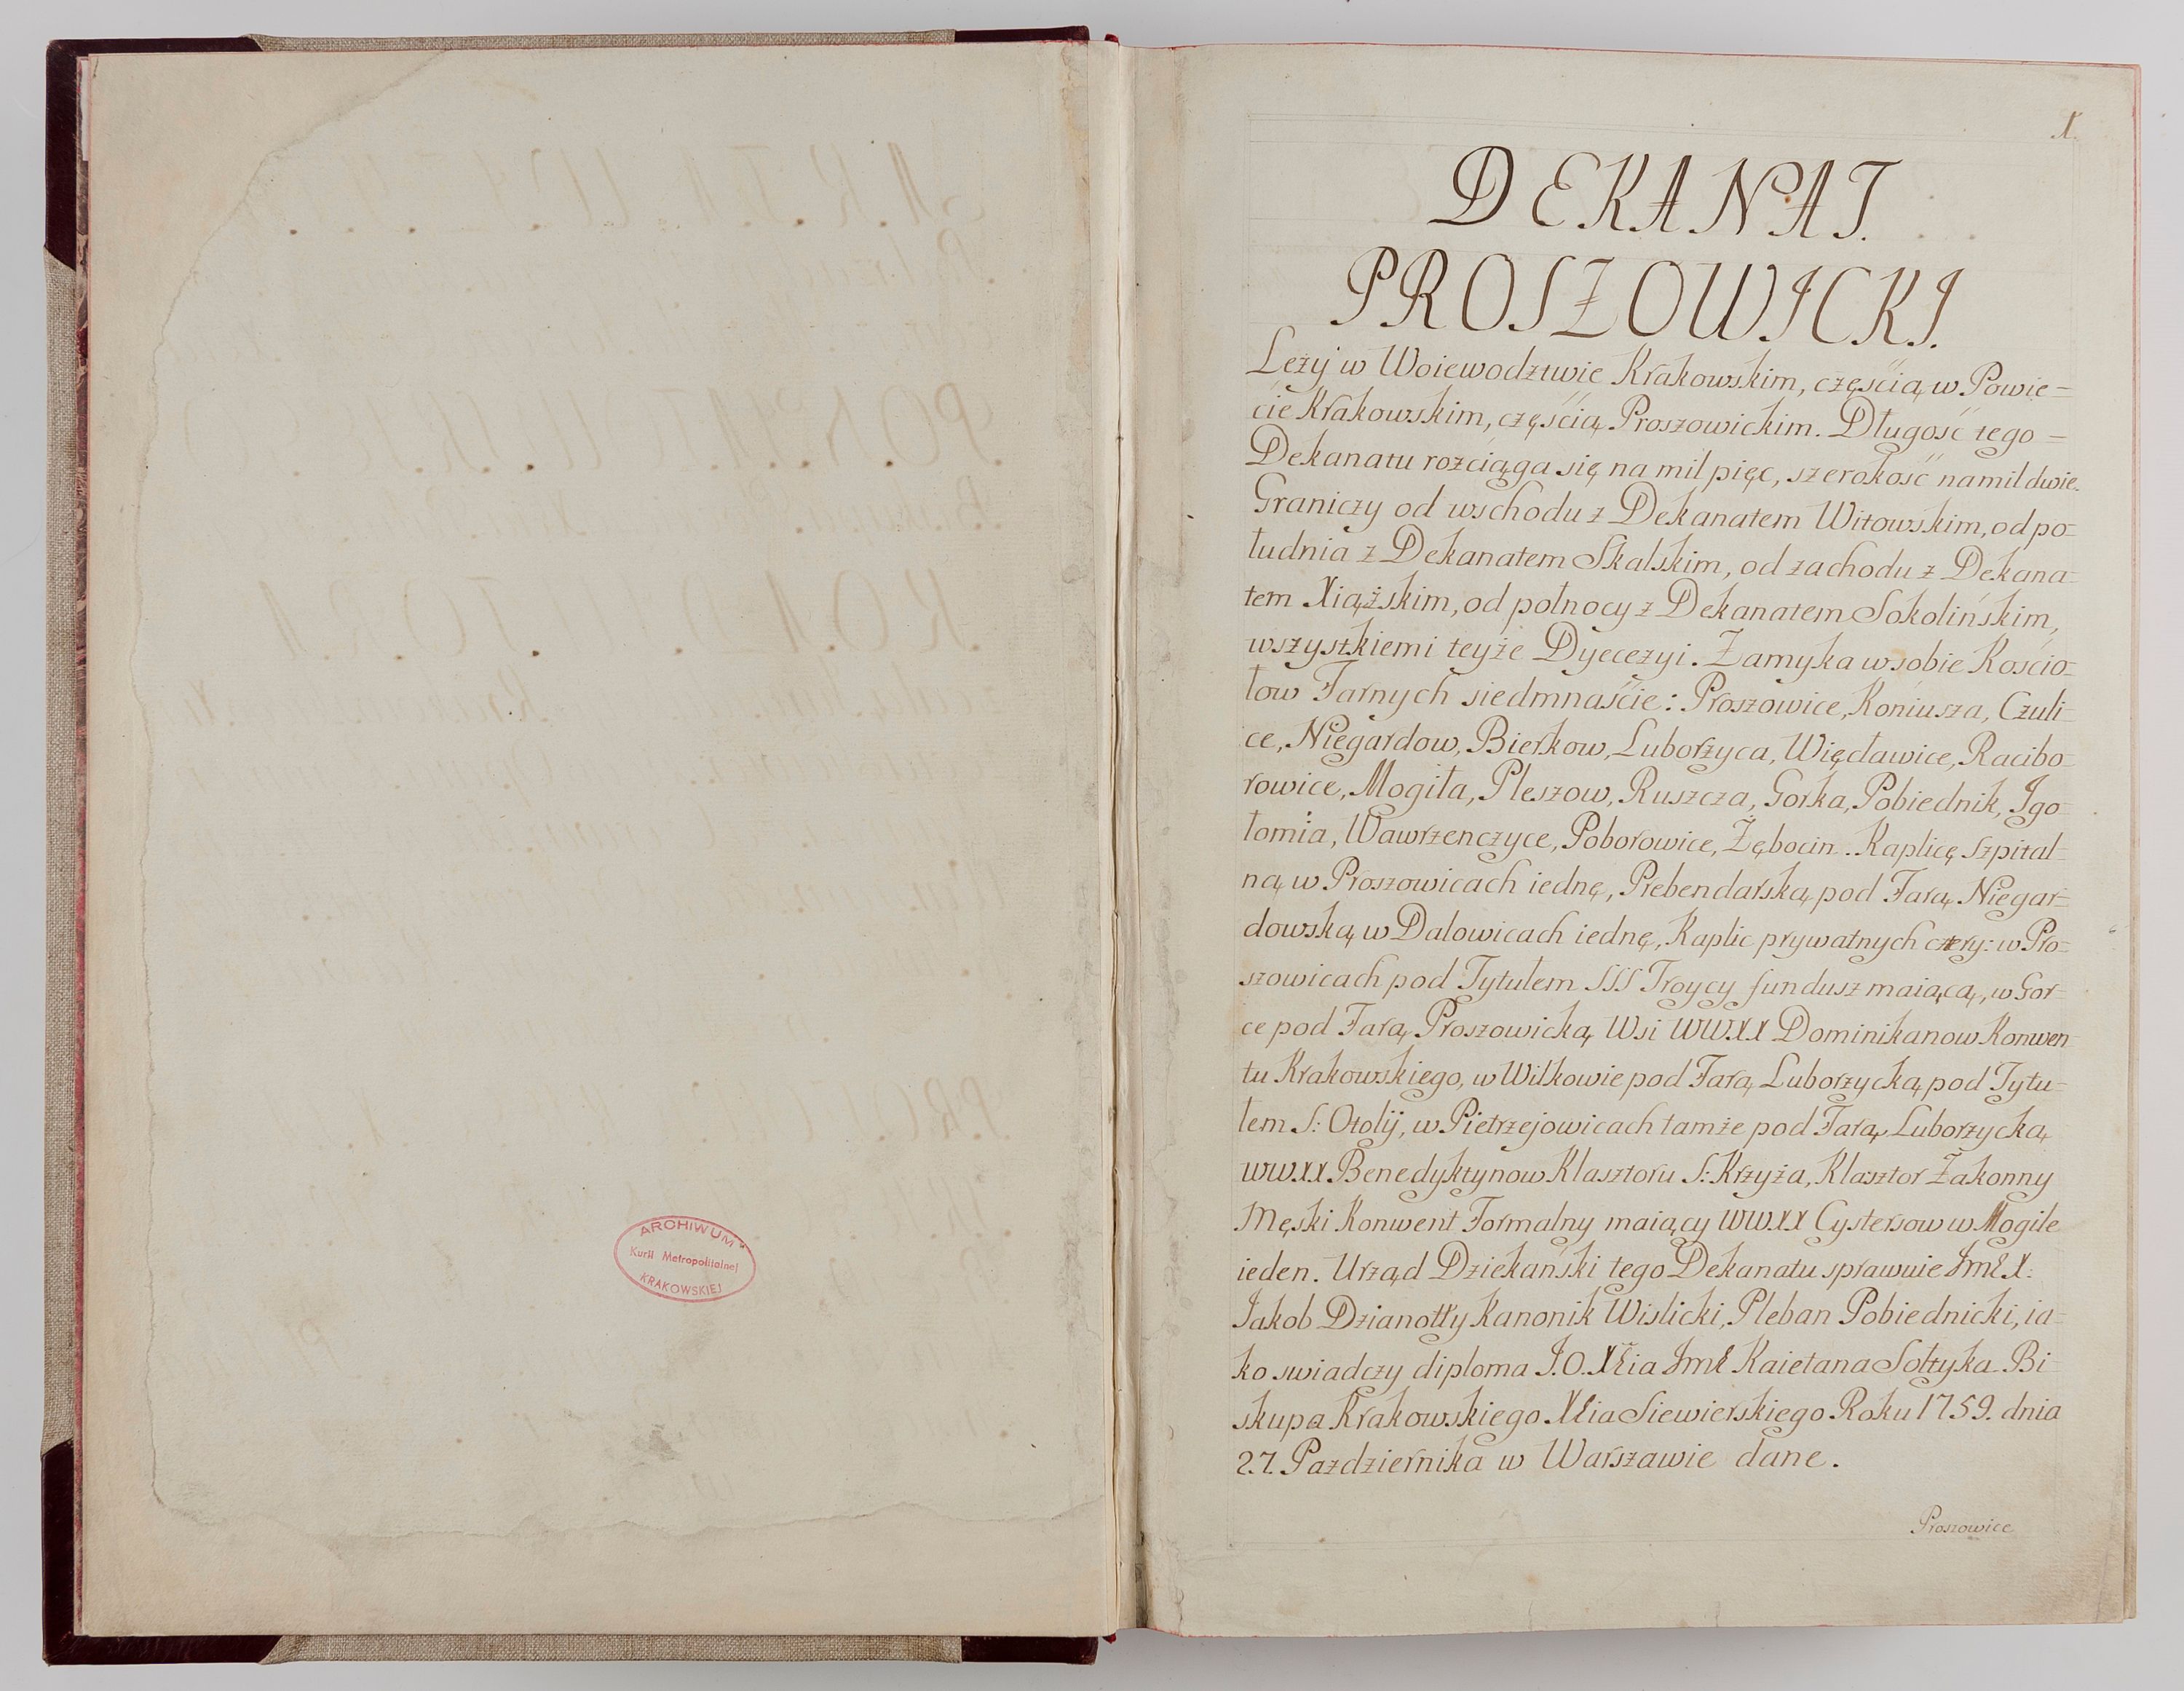 ARCHIWUM
Kurii Metropolitalnej
KRAKOWSKIEJ
1.
DEKANAT.
PROSZOWICKI.
Leży w Woiewodztwie Krakowskim, częścią w Powie=
cie Krakowskim, częścią Proszowickim. Długość tego =
Dekanatu rozciąga się na mil pięc, szerokość na mil dwie.
Graniczy od wschodu z Dekanatem Witowskim, od po=
łudnia z Dekanatem Skalskim, od zachodu z Dekana=
tem Xiążskim, od połnocy z Dekanatem Sokolińskim,
wszystkiemi teyże Dyecezyi. Zamyka w sobie Kościo=
łow Farnych siedmnaście: Proszowice, Koniusza, Czuli=
ce, Niegardow, Bierkow, Luborzyca, Więcławice, Racibo=
rowice, Mogiła, Pleszow, Ruszcza, Gorka, Pobiednik, Igo=
łomia, Wawrzenczyce, Poborowice, Zębocin. Kaplicę Szpital=
ną w Proszowicach iednę, Prebendarską pod Farą Niegar=
dowską w Dalowicach iednę, Kaplic prywatnych cztery: w Pro=
szowicach pod Tytułem SSS Troycy fundusz maiącą, w Gor=
ce pod Farą Proszowicką Wsi WW.XX Dominikanow Konwen=
tu Krakowskiego, w Wilkowie pod Farą Luborzycką pod Tytu=
łem S: Otolij, w Pietrzejowicach tamże pod Farą Luborzycką
WW.XX. Benedyktynow Klasztoru S: Krzyża, Klasztor Zakonny
Męski Konwent Formalny maiący WW.XX Cystersow w Mogile
ieden. Urząd Dziekański tego Dekanatu sprawuie Jmć X:
Jakob Dzianotty Kanonik Wislicki, Pleban Pobiednicki, ia=
ko swiadczy diploma J.O. Xcia Jmć Kaietana Sołtyka Bi=
skupa Krakowskiego Xcia Siewierskiego Roku 1759. dnia
27. Pazdziernika w Warszawie dane.
Proszowice